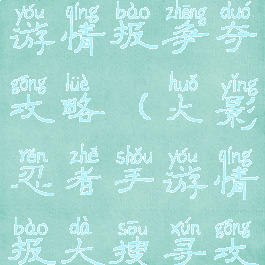 yóu qíng bào zhēng duó
游情报争夺
gōng lüè huǒ yǐng
攻略（火影
rěn zhě shǒu yóu qíng
忍者手游情
bào dà sōu xún gōng
报大搜寻攻